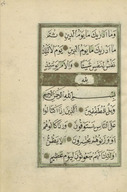 وَمَا أَدْرَيكَ مَا يَوْمُ الدِّينِ ثُمَّ
مَا أَدْرَيكَ مَا يَوْمُ الدِّينِ يَوْمَ لَا تَمْلِكُ
نَفْسٌ لِنَفْسٍ شَيْئًا وَالْأَمْرُ يَوْمَئِذٍ
لِلَّهِ
بِسْمِ اللَّهِ الرَّحْمَنِ الرَّحِيمِ
وَيْلٌ لِلْمُطَفِّفِينَ الَّذِينَ إِذَا اكْتَالُوا
عَلَى النَّاسِ يَسْتَوْفُونَ وَإِذَا كَالُوهُمْ
أَوْ وَزَنُوهُمْ يُخْسِرُونَ أَلَا يَظُنُّ
أُولَئِكَ أَنَّهُمْ مَبْعُوثُونَ لِيَوْمٍ عَظِيمٍ